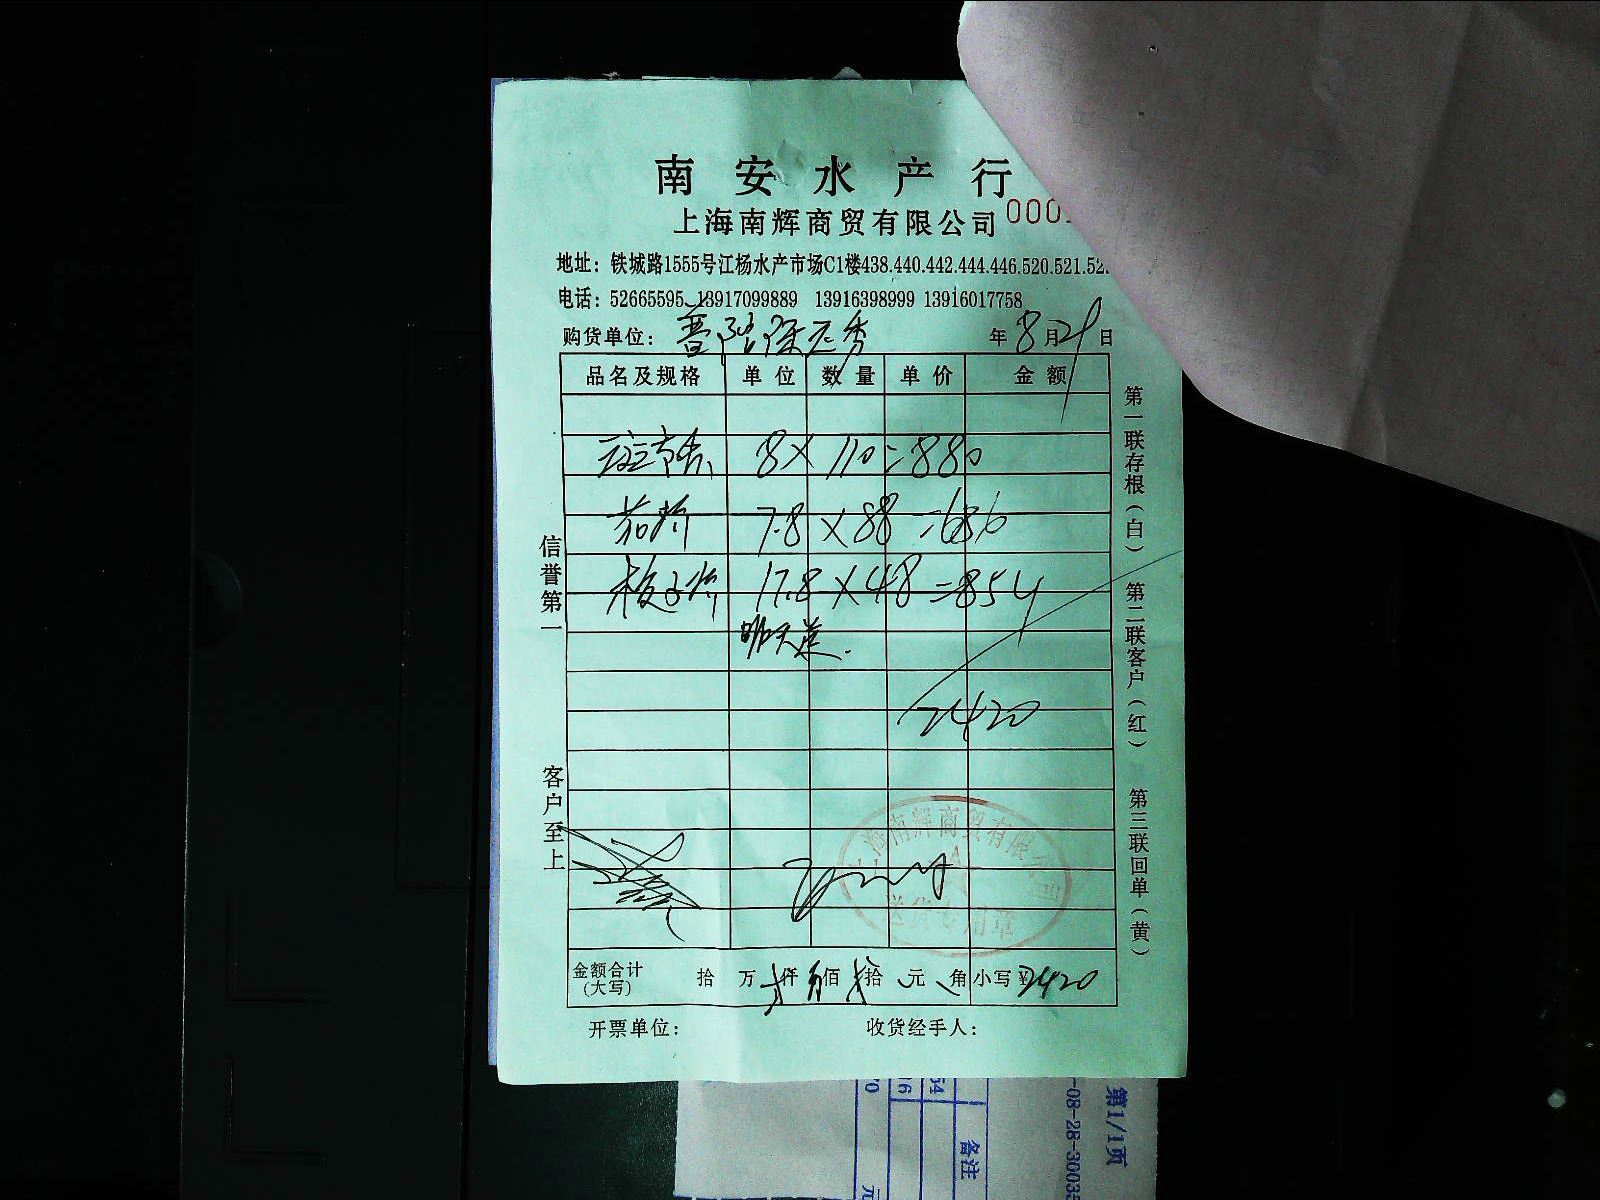 南安水产行
上海南辉商贸有限公司 000
地址：铁城路1555号江杨水产市场C1楼438.440.442.444.446.520.521.52
电话：52665595 13917099889 13916398999 13916017758
购货单位： 年 8 月 29 日
品名及规格 单位 数量 单价 金额
斑节 8×110=880
茄虾 7.8×88=686
板子虾 17.8×48=854
明天送.
2420
信誉第一
客户至上
第一联存根（白） 第二联客户（红） 第三联回单（黄）
上海南辉商贸有限公司
送货专用章
金额合计(大写) 拾 万 仟 佰 拾 元 角 小写￥2420
开票单位： 收货经手人：
第1/1页
-08-28-3003
备注
54
16
70
元